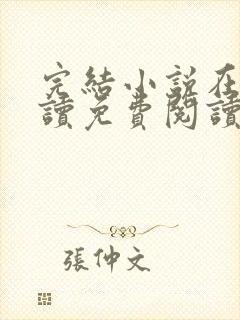 完結小說在
讀免費閱讀
張仲文